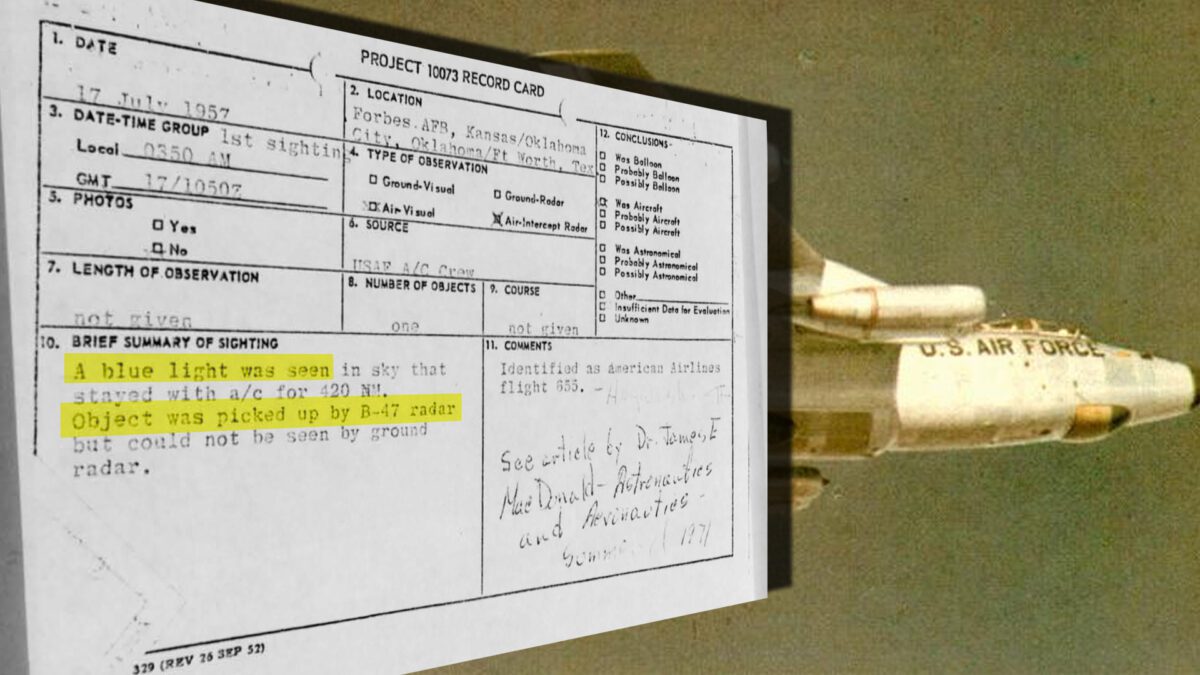 PROJECT 10073 RECORD CARD
1. DATE
17 July 1957
2. LOCATION
Forbes AFB, Kansas/Oklahoma
City, Oklahoma/Ft Worth, Tex
3. DATE-TIME GROUP 1st sighting
Local 0350 AM
GMT 17/1050Z
4. TYPE OF OBSERVATION
Ground-Visual
Ground-Radar
Air-Visual
Air-Intercept Radar
5. PHOTOS
Yes
No
6. SOURCE
USAF A/C Crew
7. LENGTH OF OBSERVATION
not given
8. NUMBER OF OBJECTS
one
9. COURSE
not given
10. BRIEF SUMMARY OF SIGHTING
A blue light was seen in sky that
stayed with a/c for 420 NM.
Object was picked up by B-47 radar
but could not be seen by ground
radar.
11. COMMENTS
Identified as American Airlines
flight 655.
See article by Dr. James E
MacDonald - Astronautics
and Aeronautics -
1971
12. CONCLUSIONS
Was Balloon
Probably Balloon
Possibly Balloon
Was Aircraft
Probably Aircraft
Possibly Aircraft
Was Astronomical
Probably Astronomical
Possibly Astronomical
Other
Insufficient Data for Evaluation
Unknown
329 (REV 26 SEP 52)
U.S. AIR FORCE